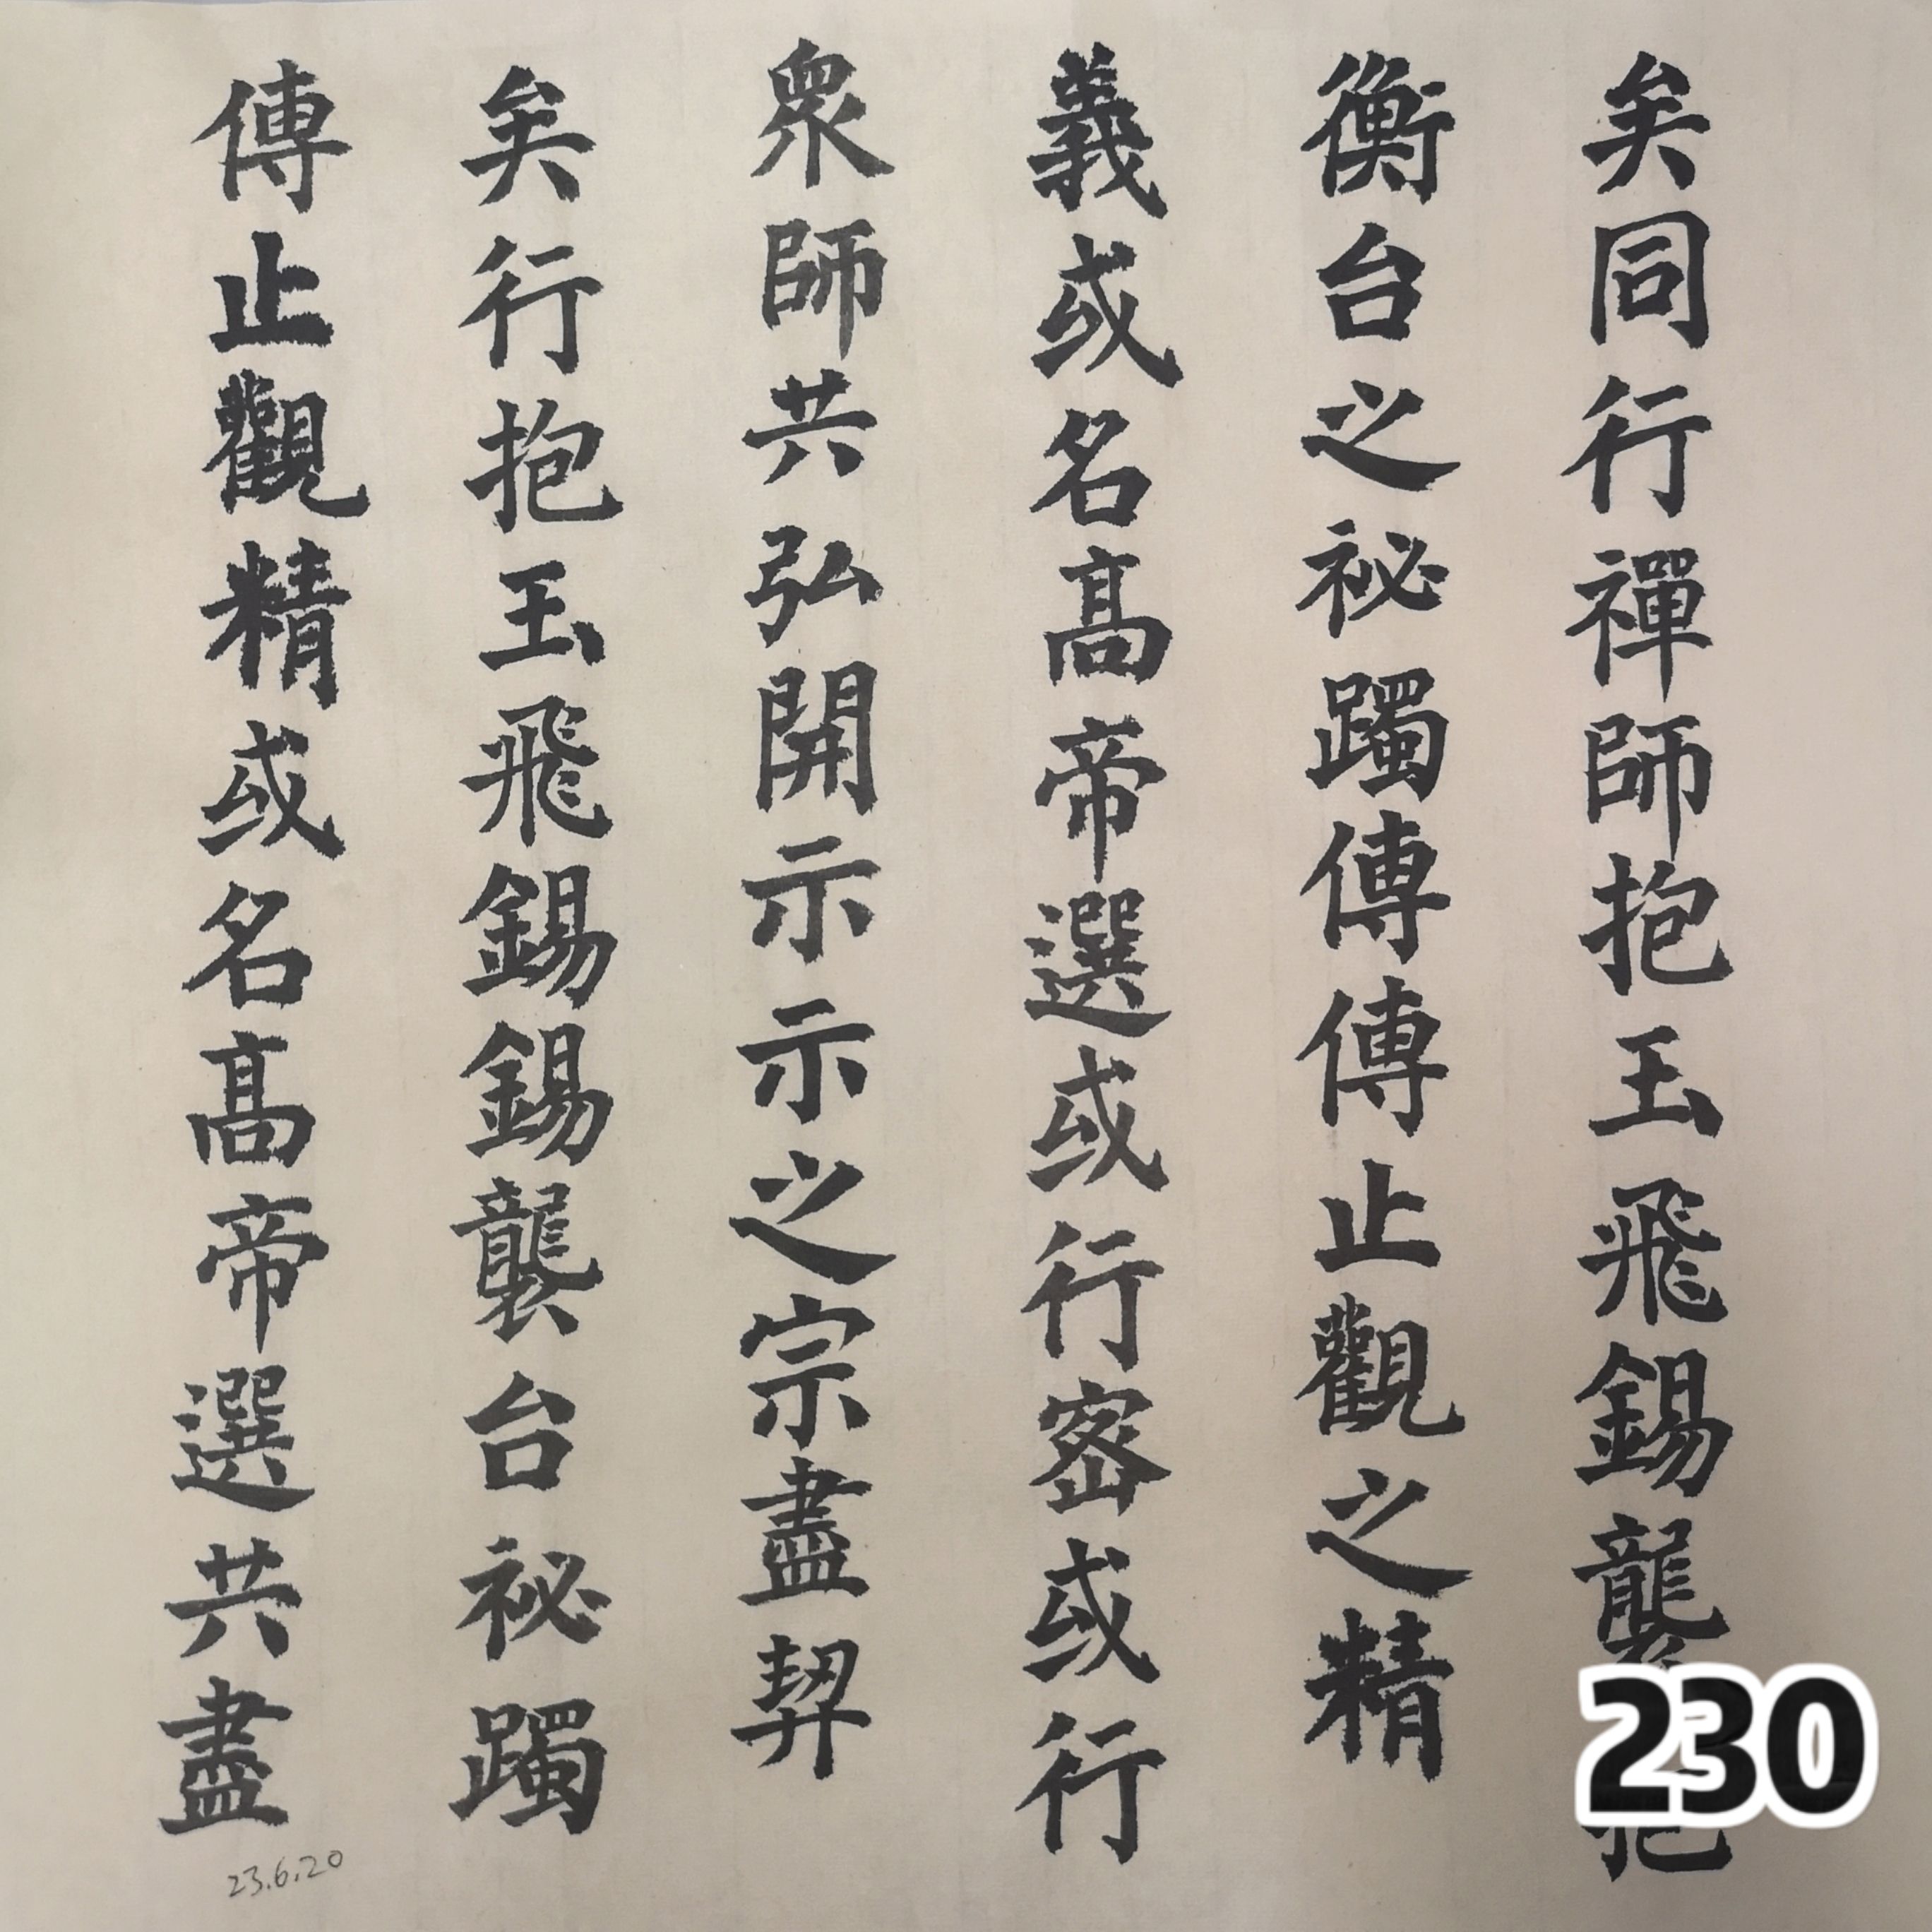 矣同行禪師抱玉飛錫襲
衡台之祕躅傳傳止觀之精
義或名高帝選或行密或行
眾師共弘開示示之宗盡契
矣行抱玉飛錫錫襲台祕躅
傳止觀精或名高帝選共盡
23.6.20
230